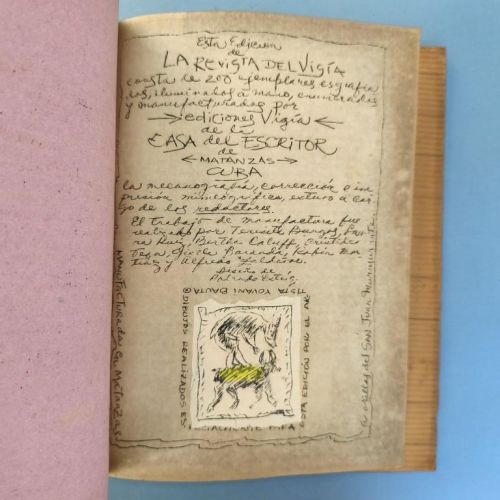 Esta Edición
de
LA REVISTA DEL VIGÍA
consta de 200 ejemplares esgrafia
dos, iluminados a mano, enumerados
y manufacturados por
ediciones Vigía
de la
CASA del ESCRITOR
de
MATANZAS
CUBA
la mecanografía, corrección e im
presión mimeográfica, estuvo a car
go de los redactores.
El trabajo de manufactura fue
realizado por Teresita Burgos,
Ruiz, Bertha Caluff,
Vega, Gisela Baranda,
y Alfredo Zaldívar.
Diseño de
Rolando Estévez
DIBUJOS REALIZADOS ES
PECIALMENTE PARA
ESTA EDICIÓN POR EL AR
TISTA YOVANI BAUTA
Manufacturada en Matanzas
a orillas del San Juan